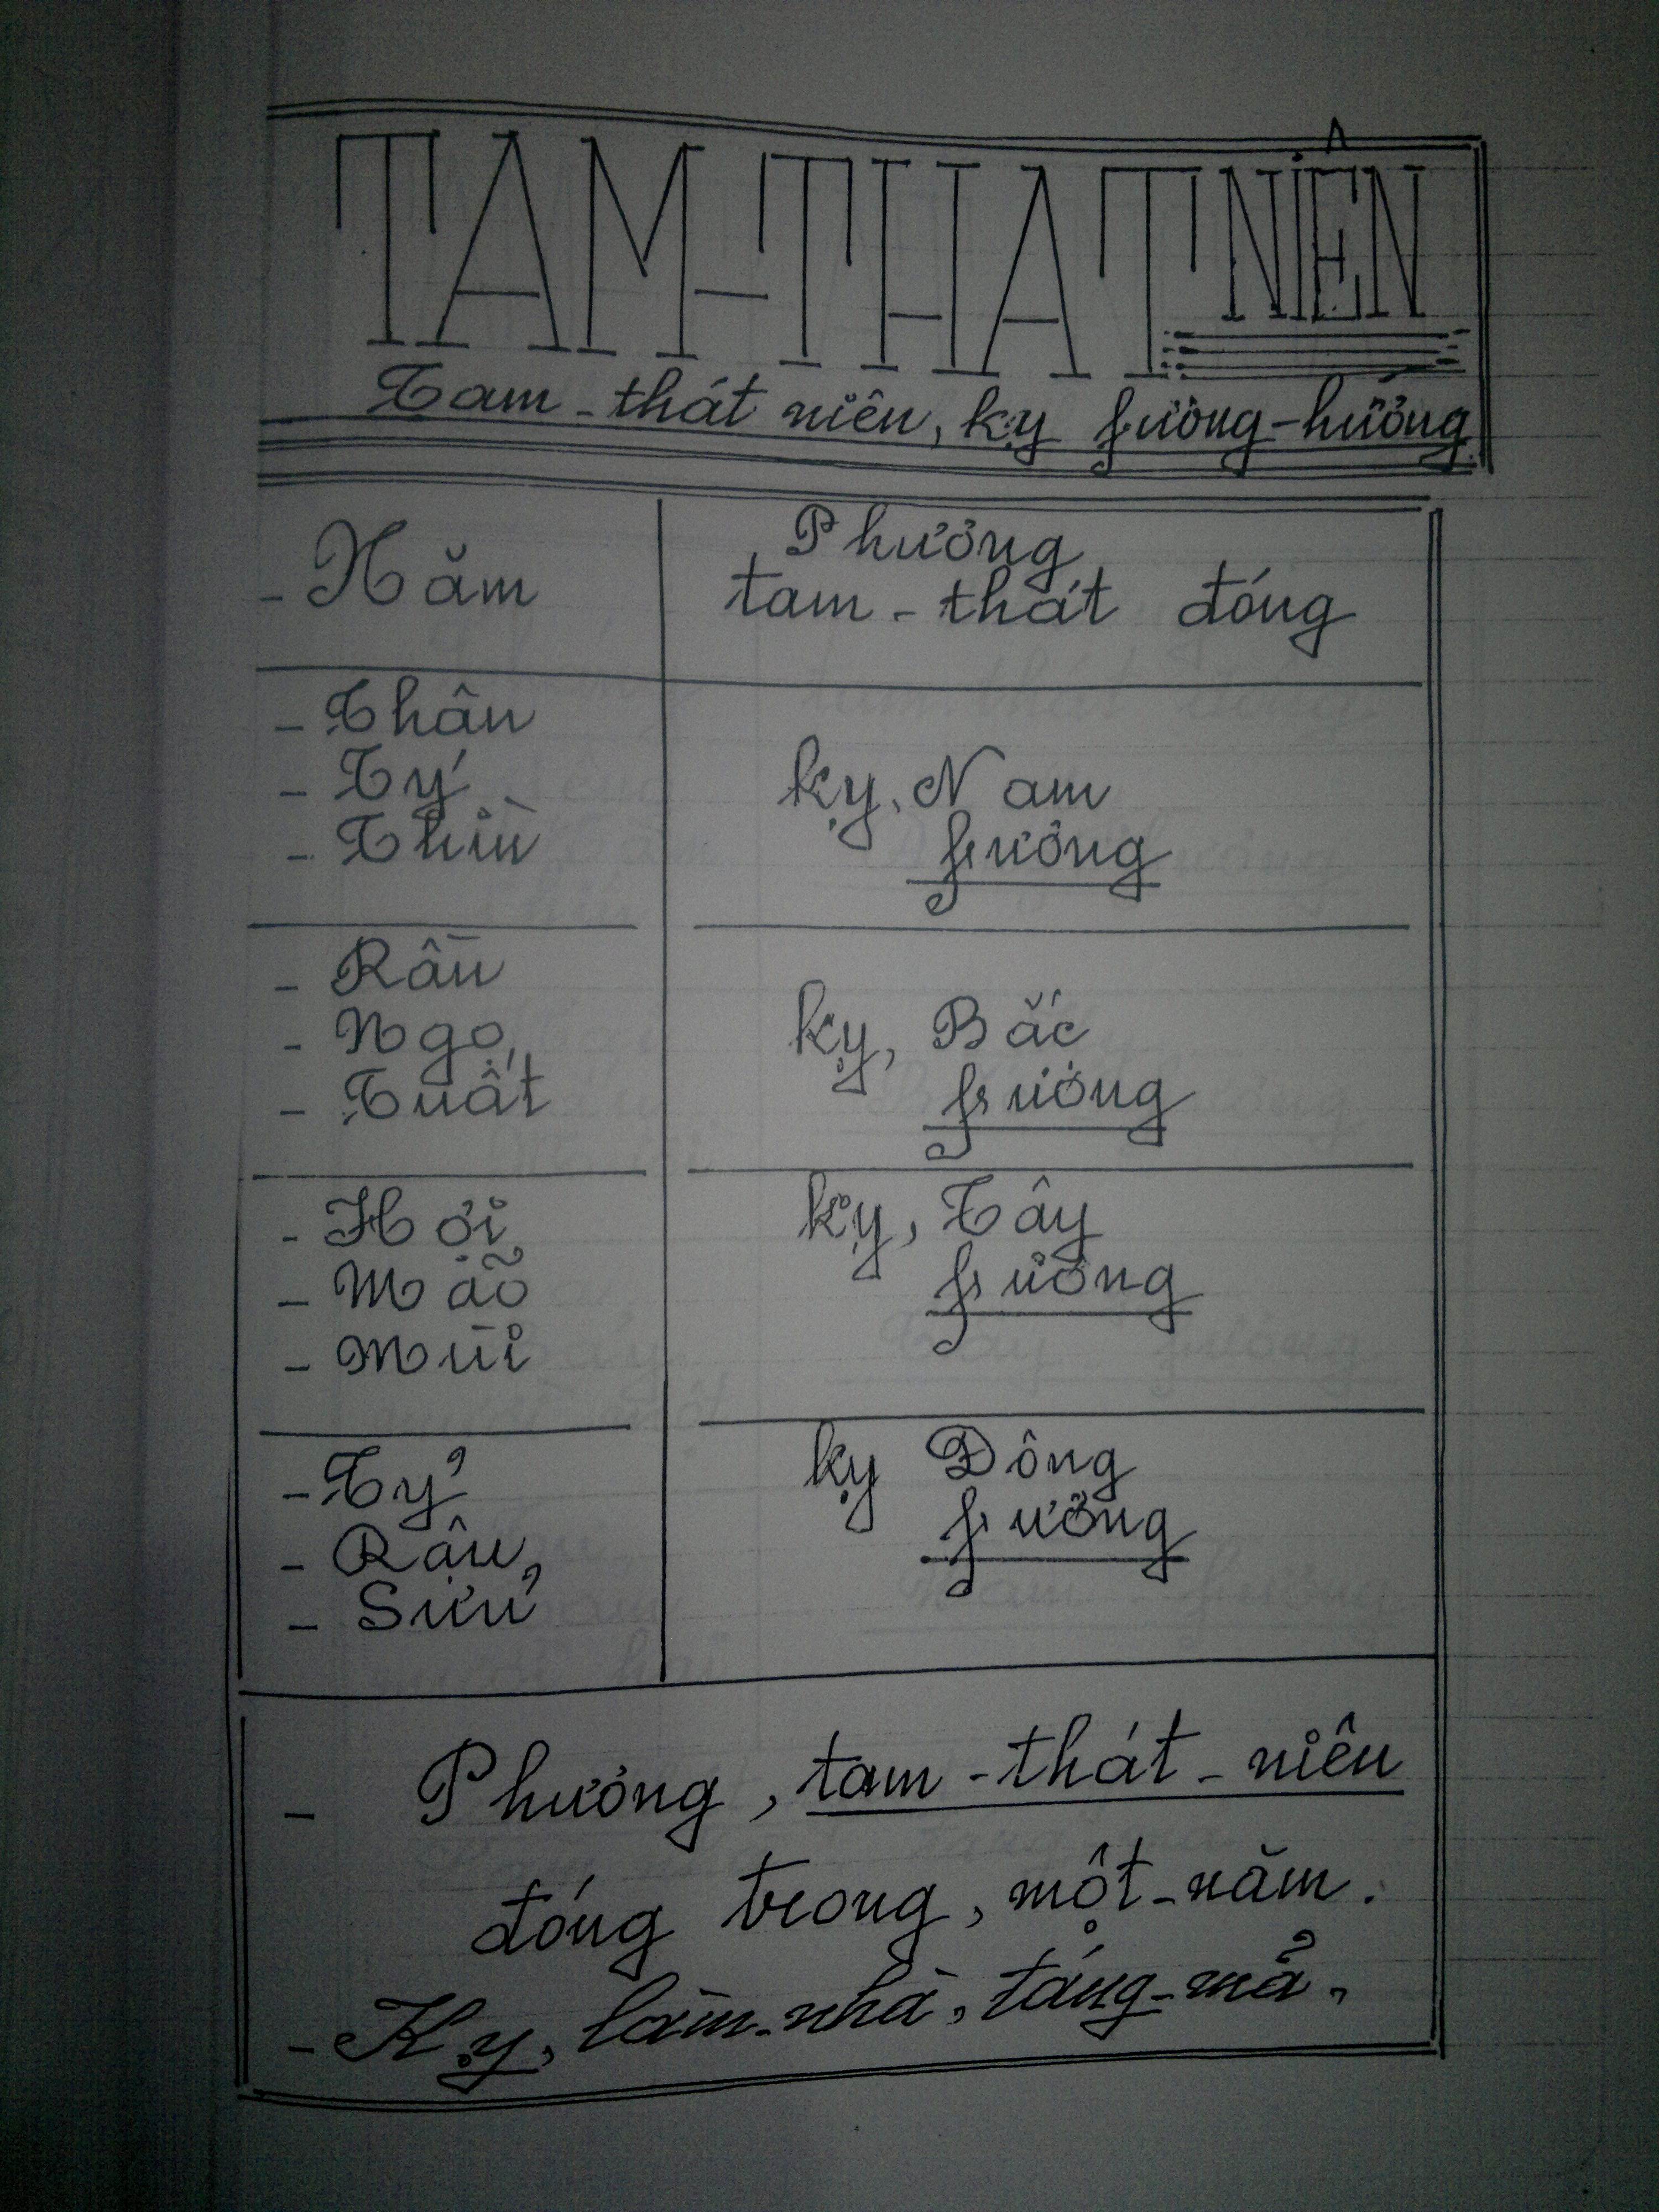 TAM-THAT NIÊN
Tam-thát niên, kỵ fương-hướng
- Năm
Phương
tam-thát đóng
- Thân
- Tý
- Thìn
kỵ, Nam
fương
- Rần
- Ngọ
- Tuất
kỵ, Bắc
fương
- Hợi
- Mão
- Mùi
kỵ, Tây
fương
- Tỷ
- Rậu
- Sửu
kỵ Đông
fương
- Phương, tam-thát-niên
đóng trong, một-năm.
- Kỵ, làm-nhà, táng-mả,